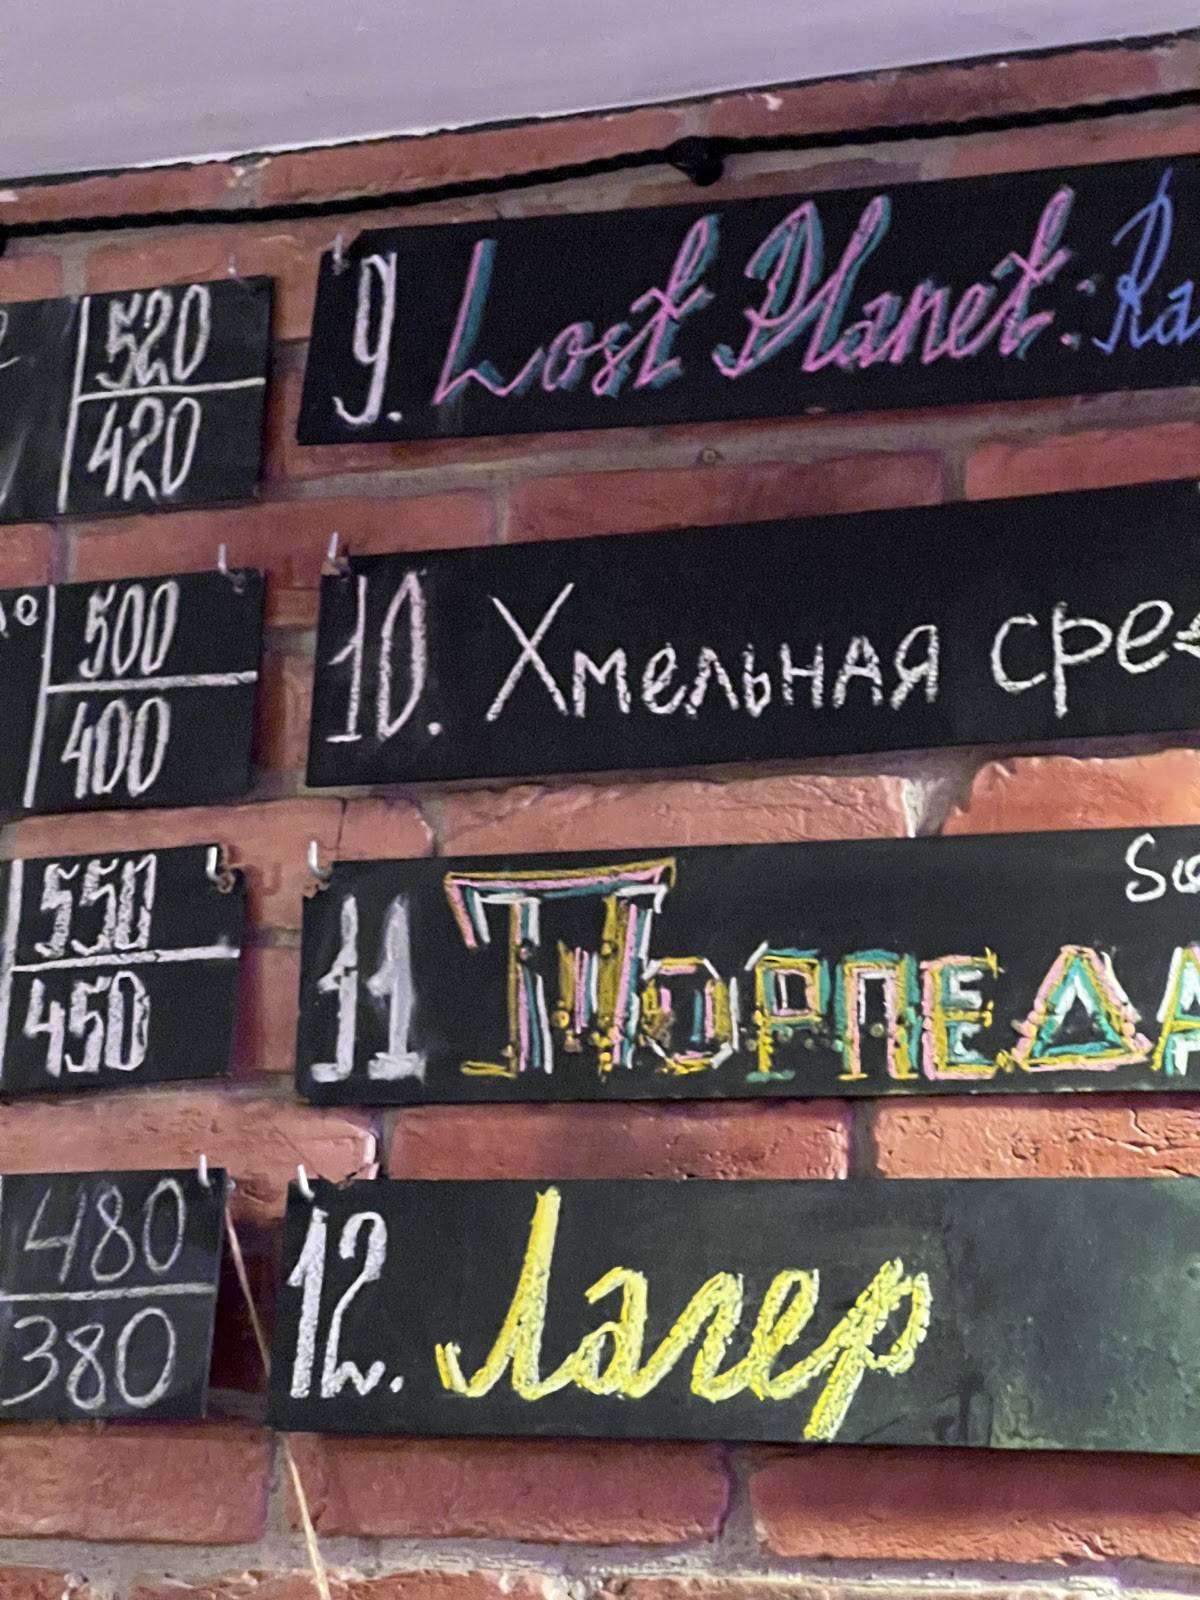 520
420
9. Lost Planet: Ra
500
400
10. Хмельная сре
550
450
11 Торпеда
480
380
12. Лагер